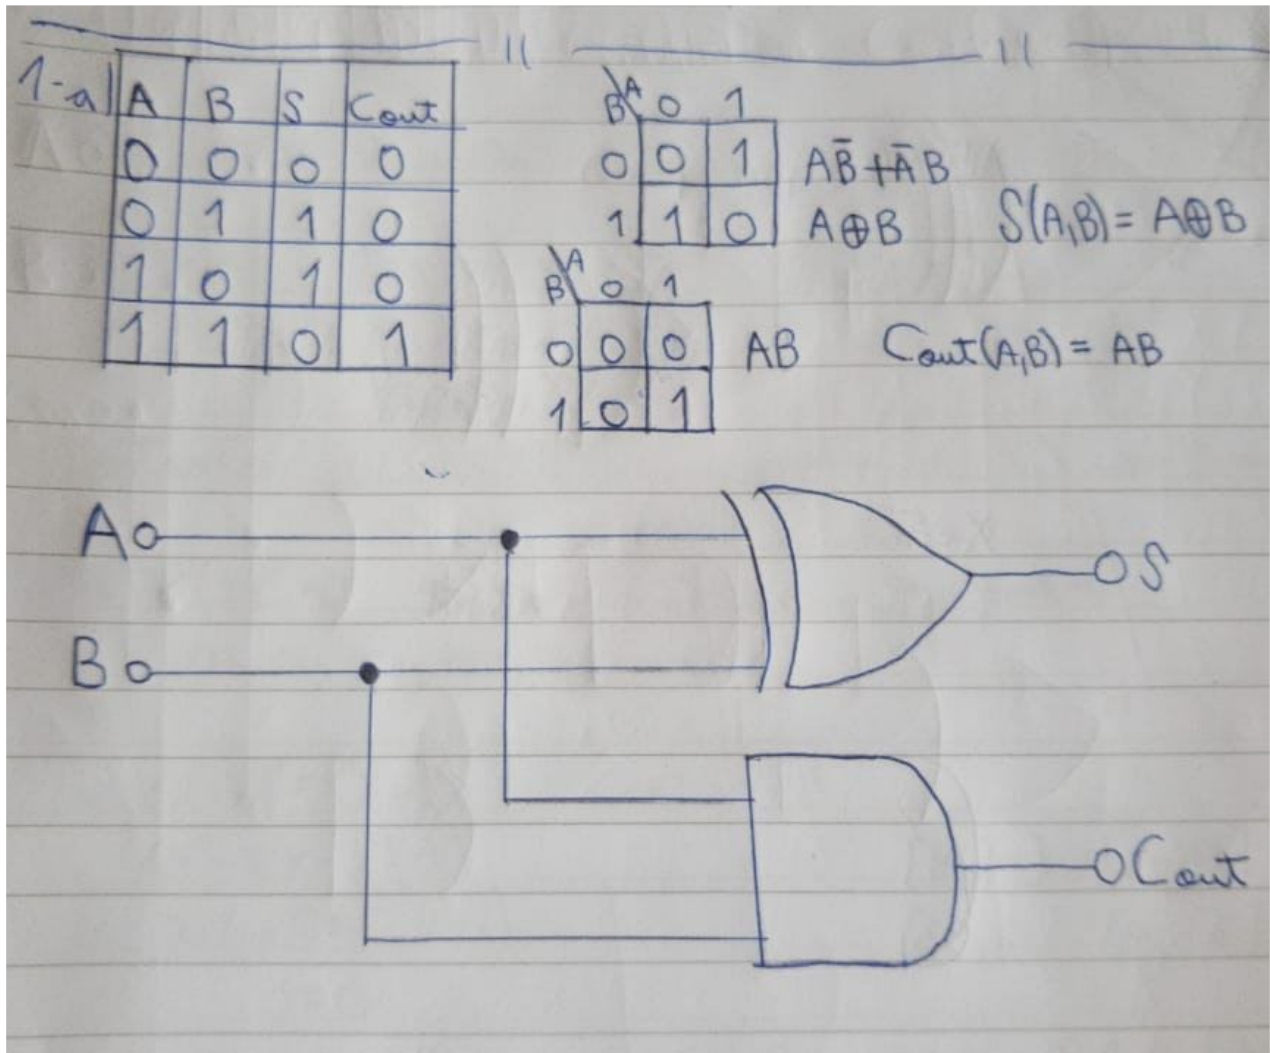 1-a) A B S Cout
0 0 0 0
0 1 1 0
1 0 1 0
1 1 0 1
B\A 0 1
0 0 1 AB̅+A̅B
1 1 0 A⊕B S(A,B)= A⊕B
B\A 0 1
0 0 0 AB Cout(A,B) = AB
1 0 1
A
S
B
Cout